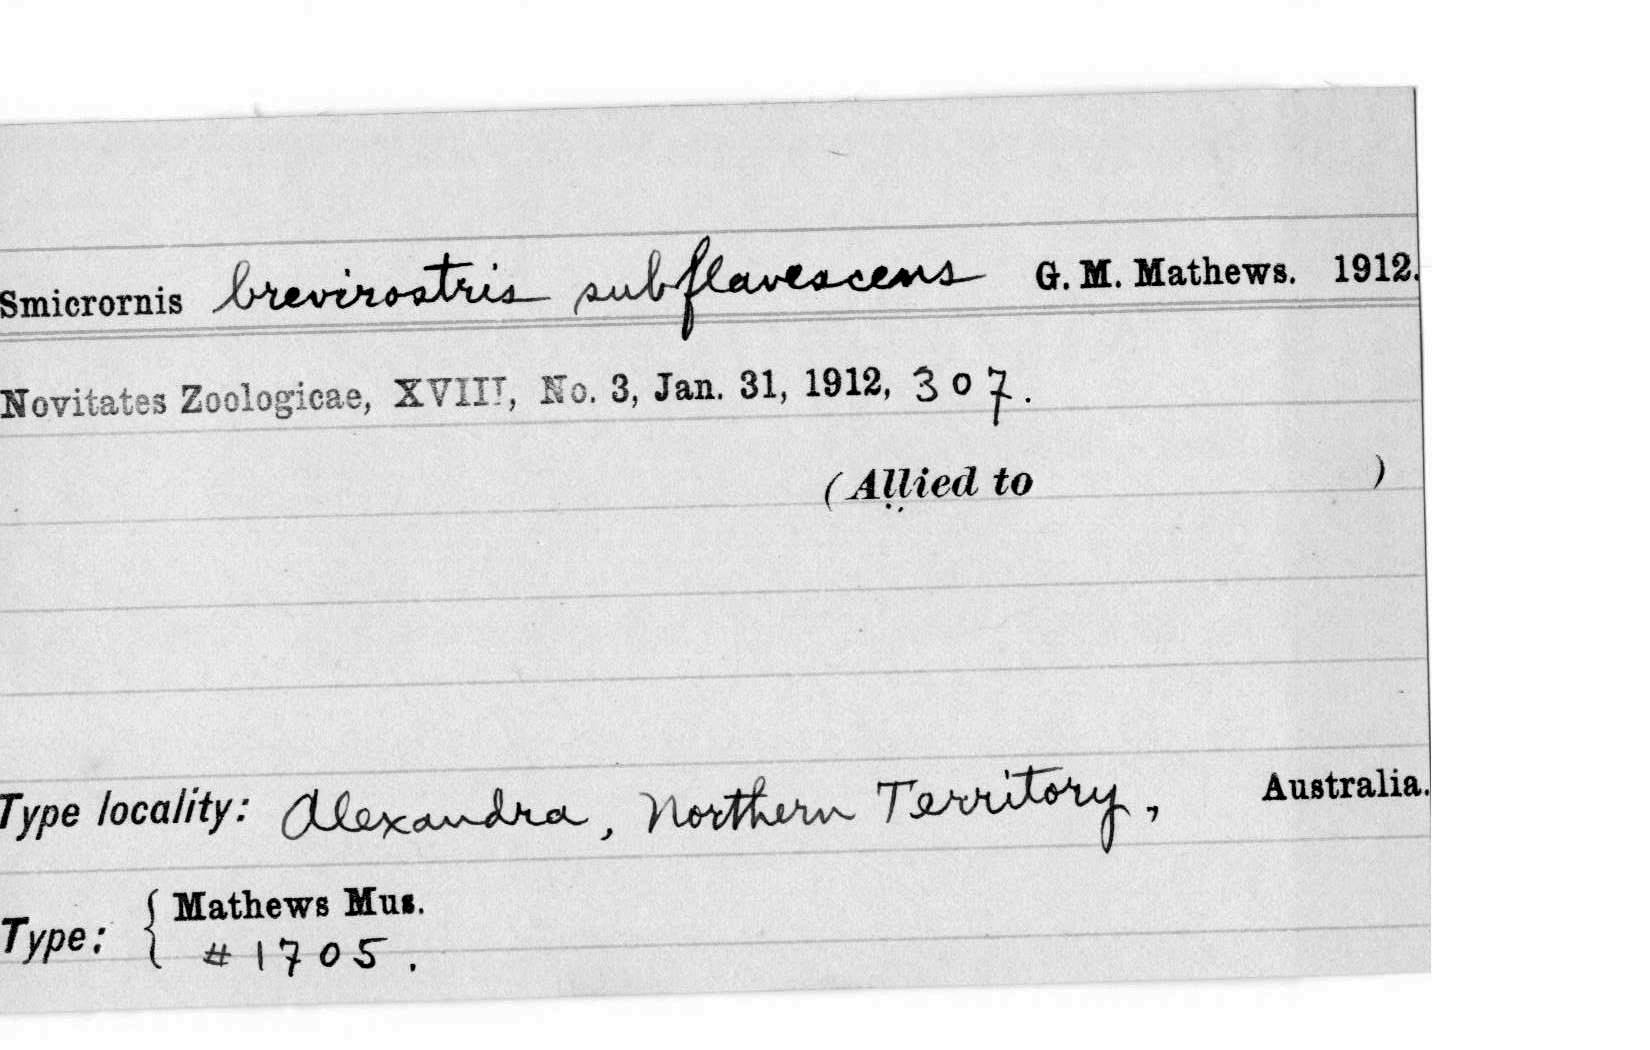 Smicrornis brevirostris subflavescens G. M. Mathews. 1912.
Novitates Zoologicae, XVIII, No. 3, Jan. 31, 1912, 307.
(Allied to )
Type locality: Alexandra, Northern Territory, Australia.
Type: { Mathews Mus.
#1705.